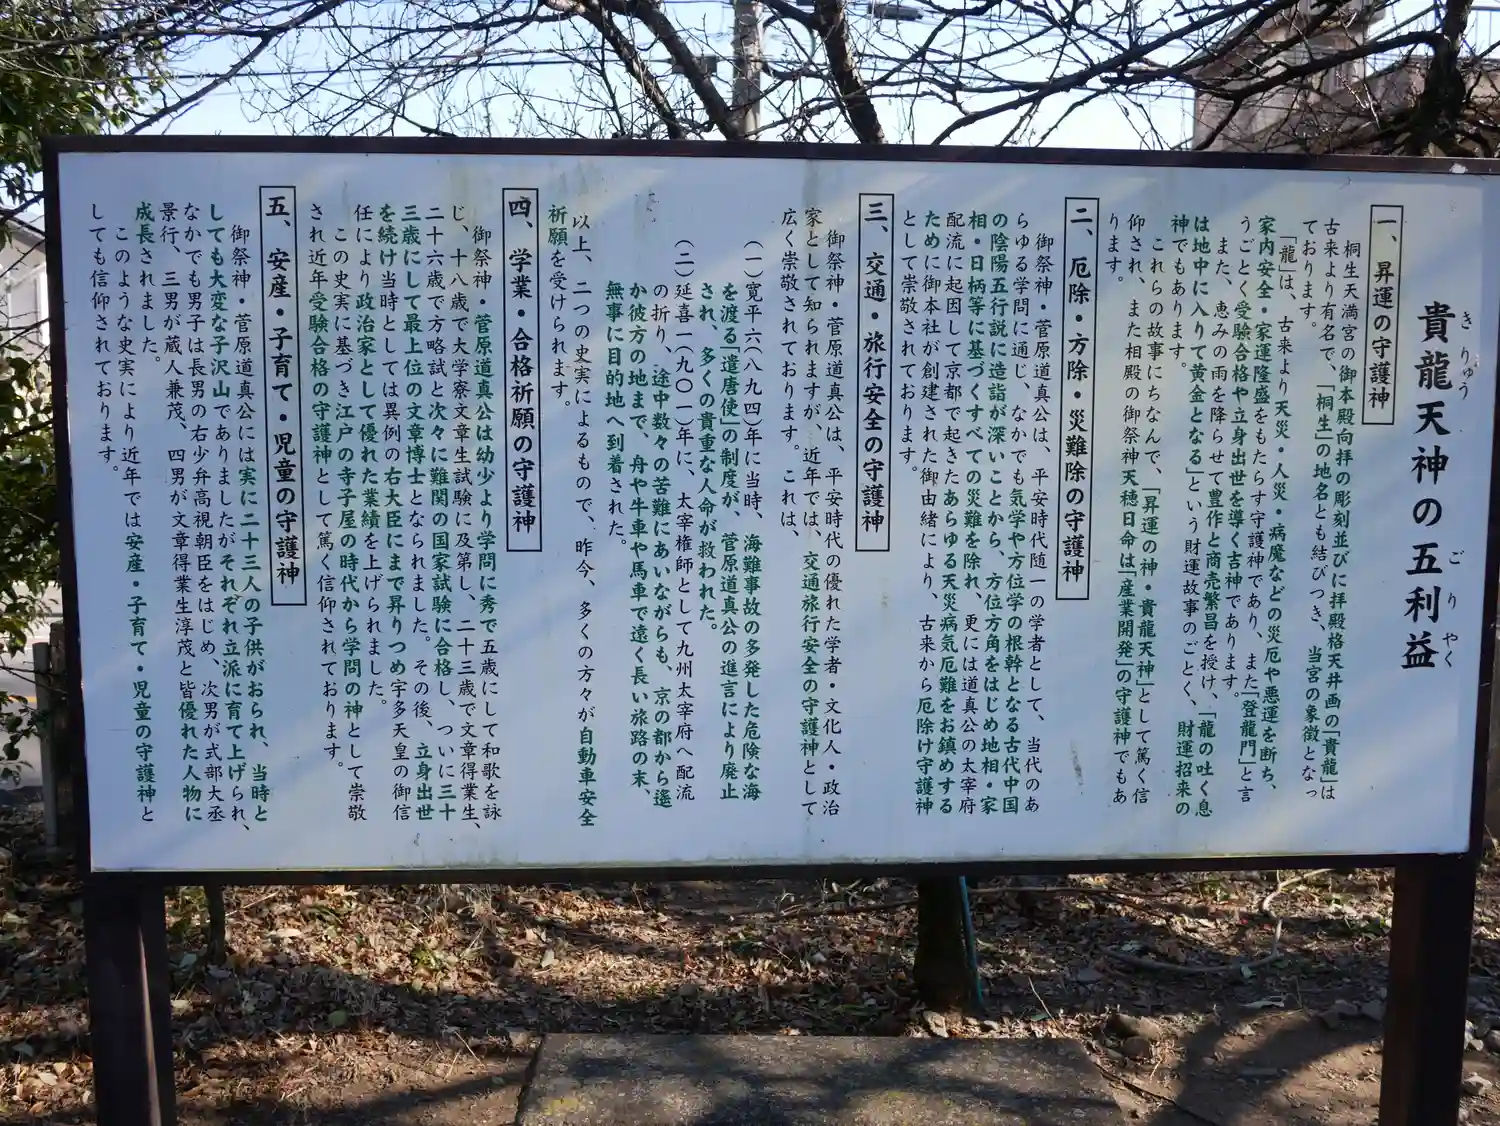 貴龍天神の五利益
きりゅう　ごりやく
一、昇運の守護神
桐生天満宮の御本殿向拝の彫刻並びに拝殿格天井画の「貴龍」は
古来より有名で、「桐生」の地名とも結びつき、当宮の象徴となっ
ております。
「龍」は、古来より天災・人災・病魔などの災厄や悪運を断ち、
家内安全・家運隆盛をもたらす守護神であり、また「登龍門」と言
うごとく受験合格や立身出世を導く吉神であります。
また、恵みの雨を降らせて豊作と商売繁昌を授け、「龍の吐く息
は地中に入りて黄金となる」という財運故事のごとく、財運招来の
神でもあります。
これらの故事にちなんで、「昇運の神・貴龍天神」として篤く信
仰され、また相殿の御祭神天穂日命は「産業開発」の守護神でもあ
ります。
二、厄除・方除・災難除の守護神
御祭神・菅原道真公は、平安時代随一の学者として、当代のあ
らゆる学問に通じ、なかでも気学や方位学の根幹となる古代中国
の陰陽五行説に造詣が深いことから、方位方角をはじめ地相・家
相・日柄等に基づくすべての災難を除れ、更には道真公の太宰府
配流に起因して京都で起きたあらゆる天災病気厄難をお鎮めする
ために御本社が創建された御由緒により、古来から厄除け守護神
として崇敬されております。
三、交通・旅行安全の守護神
御祭神・菅原道真公は、平安時代の優れた学者・文化人・政治
家として知られますが、近年では、交通旅行安全の守護神として
広く崇敬されております。これは、
（一）寛平六（八九四）年に当時、海難事故の多発した危険な海
を渡る「遣唐使」の制度が、菅原道真公の進言により廃止
され、多くの貴重な人命が救われた。
（二）延喜一（九〇一）年に、太宰権師として九州太宰府へ配流
の折り、途中数々の苦難にあいながらも、京の都から遙
か彼方の地まで、舟や牛車や馬車で遠く長い旅路の末、
無事に目的地へ到着された。
以上、二つの史実によるもので、昨今、多くの方々が自動車安全
祈願を受けられます。
四、学業・合格祈願の守護神
御祭神・菅原道真公は幼少より学問に秀で五歳にして和歌を詠
じ、十八歳で大学寮文章生試験に及第し、二十三歳で文章得業生、
二十六歳で方略試と次々に難関の国家試験に合格し、ついに三十
三歳にして最上位の文章博士となられました。その後、立身出世
を続け当時としては異例の右大臣にまで昇りつめ宇多天皇の御信
任により政治家として優れた業績を上げられました。
この史実に基づき江戸の寺子屋の時代から学問の神として崇敬
され近年受験合格の守護神として篤く信仰されております。
五、安産・子育て・児童の守護神
御祭神・菅原道真公には実に二十三人の子供がおられ、当時と
しても大変な子沢山でありましたがそれぞれ立派に育て上げられ、
なかでも男子は長男の右少弁高視朝臣をはじめ、次男が式部大丞
景行、三男が蔵人兼茂、四男が文章得業生淳茂と皆優れた人物に
成長されました。
このような史実により近年では安産・子育て・児童の守護神と
しても信仰されております。